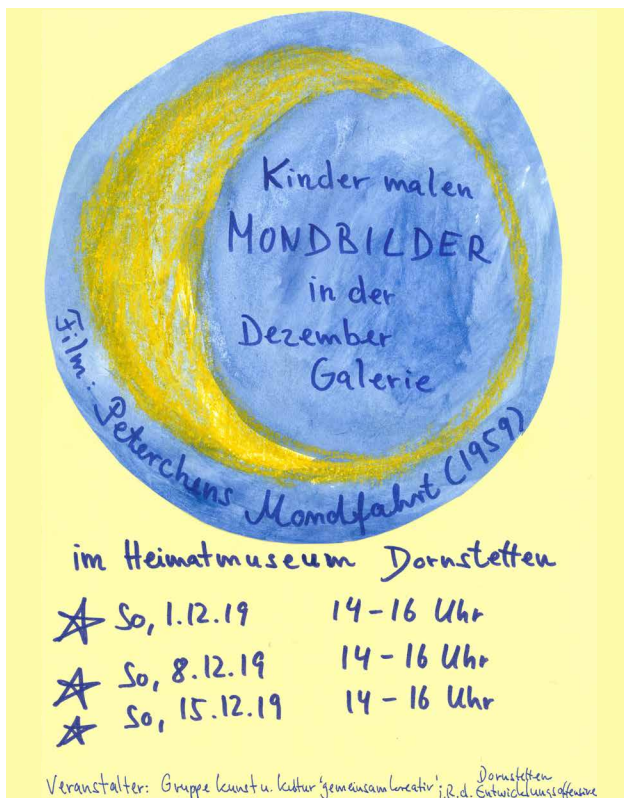 Kinder malen
MONDBILDER
in der
Dezember
Galerie
Film: Peterchens Mondfahrt (1959)
im Heimatmuseum Dornstetten
So, 1.12.19 14-16 Uhr
So, 8.12.19 14-16 Uhr
So, 15.12.19 14-16 Uhr
Veranstalter: Gruppe Kunst u. Kultur 'gemeinsam kreativ' i.R.d. Dornstetten
Entwicklungsoffensive